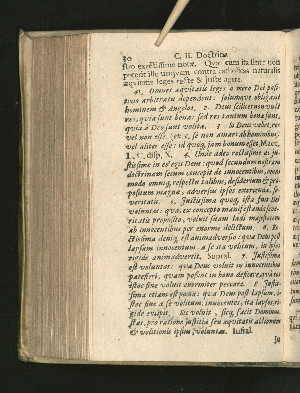 30 C. II. Doctrina
stro exactissime notæ. Quæ cum ita sint: non
poterit ille unquam contra naturalis
æquitatis leges recte & juste agere.
1. Omnes æquitatis leges a mero Dei posi-
tivo arbitratu dependent: solumque obligant
hominem & Angelos. 2. Deus scilicet non vult
res, quia sunt bonæ: sed res tantum bonæ sunt,
quia à Deo sunt volitæ. 3. Si Deus vellet, re-
vel non esse. se non amari ab hominibus,
vel aliter esse: id quoq, jam bonum esset. Macc.
L. C. disp. X. 4. Unde adeo rectissime ac ju-
stissime in ed egit Deus quod secundum nostram
doctrinam secum concepit de innocentibus, omni-
modo omniq, respectu talibus, desiderium & pro-
positum magnæ, adversus ipsos exercendæ, se-
veritatis. 5. Justissima quoq, ista fuit Dei
voluntas: qua, ex concepto manifestandæ seve-
ritatis proposito, voluit suam lædi majestatem
ab innocentibus per enorme delictum. 6. Ju-
stissima deniq, est animadversio: qua Deus post
lapsum innocentum a se ita volitum, in ipsos
rigide animadvertit. Supral. 7. Justissima
est voluntas: qua Deus voluit in innocentibus
patefieri, quam possint in bono deficere, qua
hoc sine voluit enormiter peccare. 8. Justis-
sima etiam est pœna: qua Deus post lapsum,
hoc fine a se volitum, innocentes, ita lapsos, ri-
gide excipit. Sic voluit, sicq, facit Dominus
stas, pro ratione justitiæ seu æquitatis actionem
& volitionis ipsius, voluntas. Infral.